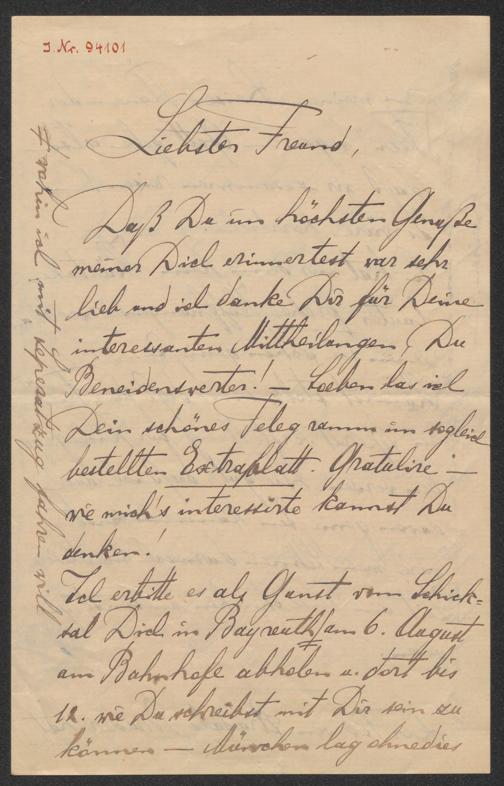 J. Nr. 94101
Liebster Freund,
Daß Du im höchsten Genuße
meiner Dich erinnertest war sehr
lieb und ich danke Dir für Deine
interessanten Mittheilungen, Du
Beneidenswerter! — Soeben las ich
Dein schönes Telegramm im sogleich
bestellten Extrablatt. Gratulire —
wie mich's interessirte kannst Du
denken!
Ich erbitte es als Gunst vom Schick=
sal Dich in Bayreuth am 6. August
am Bahnhofe abholen u. dort bis
12. wie Du schreibst mit Dir sein zu
können — München lag ohnedies
wohin ich mit Separatzug fahren will